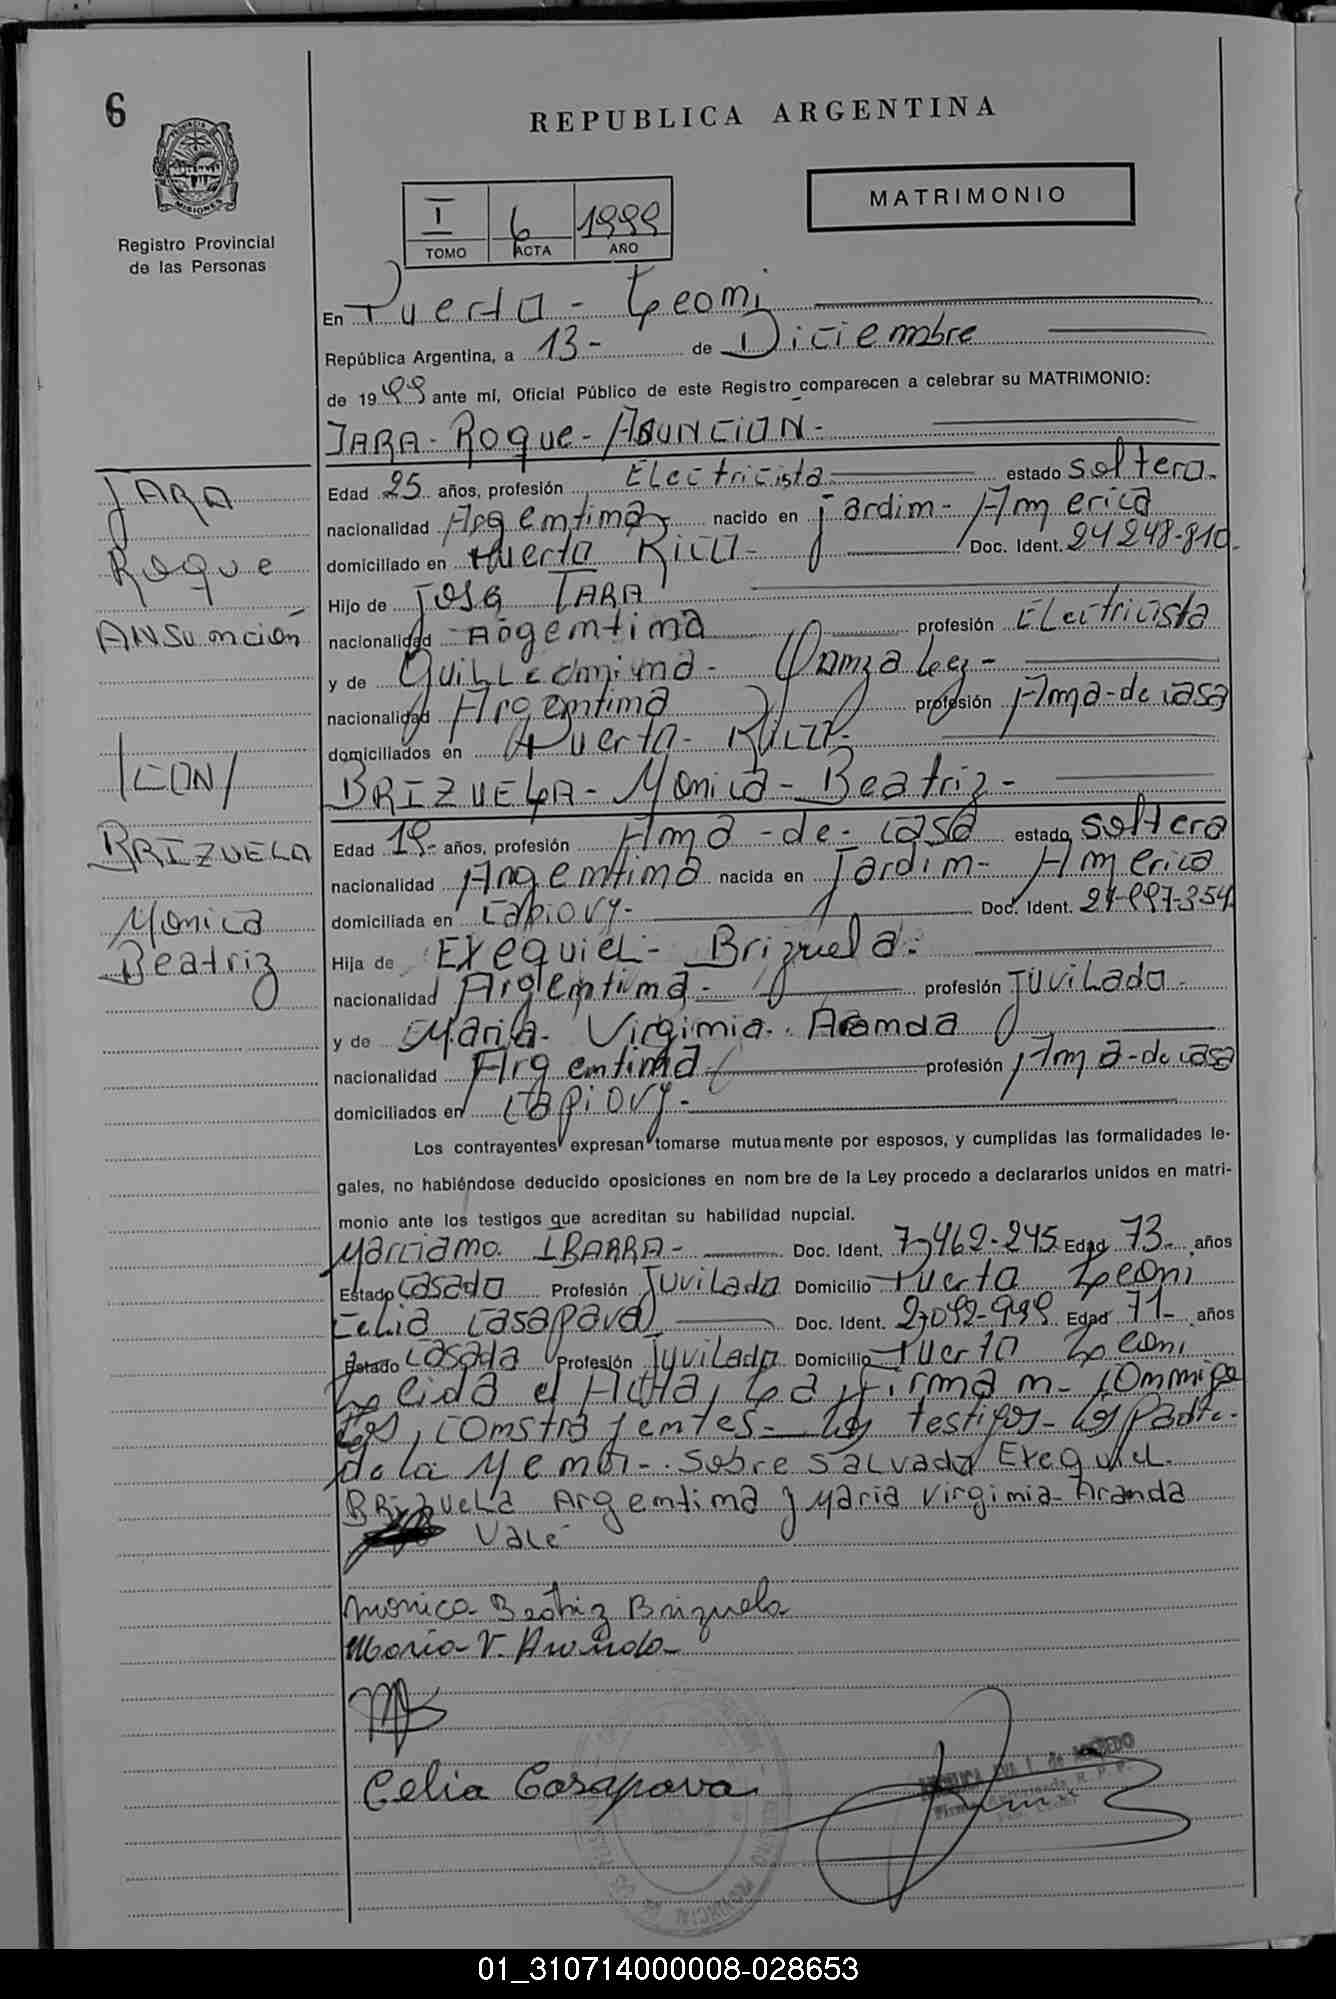 6
REPUBLICA ARGENTINA
PROVINCIA DE
MISIONES
Registro Provincial
de las Personas
MATRIMONIO
I 6 1999
TOMO ACTA AÑO
En Puerto - Leoni
República Argentina, a 13- de Diciembre
de 1999 ante mí, Oficial Público de este Registro comparecen a celebrar su MATRIMONIO:
JARA - Roque - ASUNCION -
Edad 25 años, profesión Electricista estado soltero.
nacionalidad Argentina nacido en Jardin - America
domiciliado en Puerto Rico - Doc. Ident. 24248-810-
Hijo de Jose JARA
nacionalidad Argentina profesión Electricista
y de Guillermina - Gonzalez -
nacionalidad Argentina profesión Ama-de casa
domiciliados en Puerto - Rico -
BRIZUELA - Monica - Beatriz -
Edad 19- años, profesión Ama - de - casa estado soltera
nacionalidad Argentina nacida en Jardin - America
domiciliada en Capiovy - Doc. Ident.
Hija de Exequiel - Brizuela -
nacionalidad Argentina - profesión Juvilado -
y de Maria - Virginia - Aranda
nacionalidad Argentina profesión Ama-de casa
domiciliados en Capiovy -
Los contrayentes expresan tomarse mutuamente por esposos, y cumplidas las formalidades le-
gales, no habiéndose deducido oposiciones en nom bre de la Ley procedo a declararlos unidos en matri-
monio ante los testigos que acreditan su habilidad nupcial.
Marciano IBARRA - Doc. Ident. 7,462-245 Edad 73- años
Estado Casado Profesión Juvilado Domicilio Puerto Leoni
Celia Casapava Doc. Ident. Edad 71- años
Estado Casada Profesión Juvilada Domicilio Puerto Leoni
Leida el Acta, La Firman - Conmigo
Los, constrajentes - los testigos - los padre -
de la Menor - Sobre Salvado Exequiel -
Brizuela Argentina y Maria Virginia - Aranda
Vale
Monica Beatriz Brizuela
Maria V. Aranda
Celia Casapava
JARA
Roque
ANSuncion
/CON/
BRIZUELA
Monica
Beatriz
01_310714000008-028653